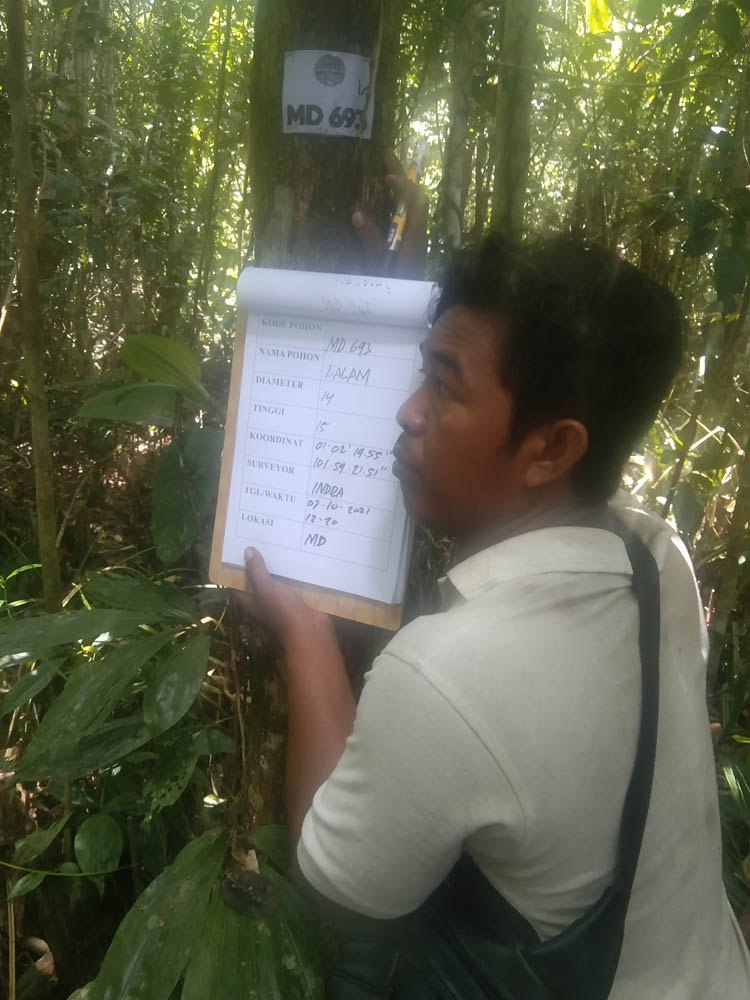 MD 693
KODE POHON MD 693
NAMA POHON LALAM
DIAMETER 14
TINGGI 15
KOORDINAT 01.02'19.55"
101.59.21.51"
SURVEYOR INDRA
TGL/WAKTU 07.10.2021
12.20
LOKASI MD